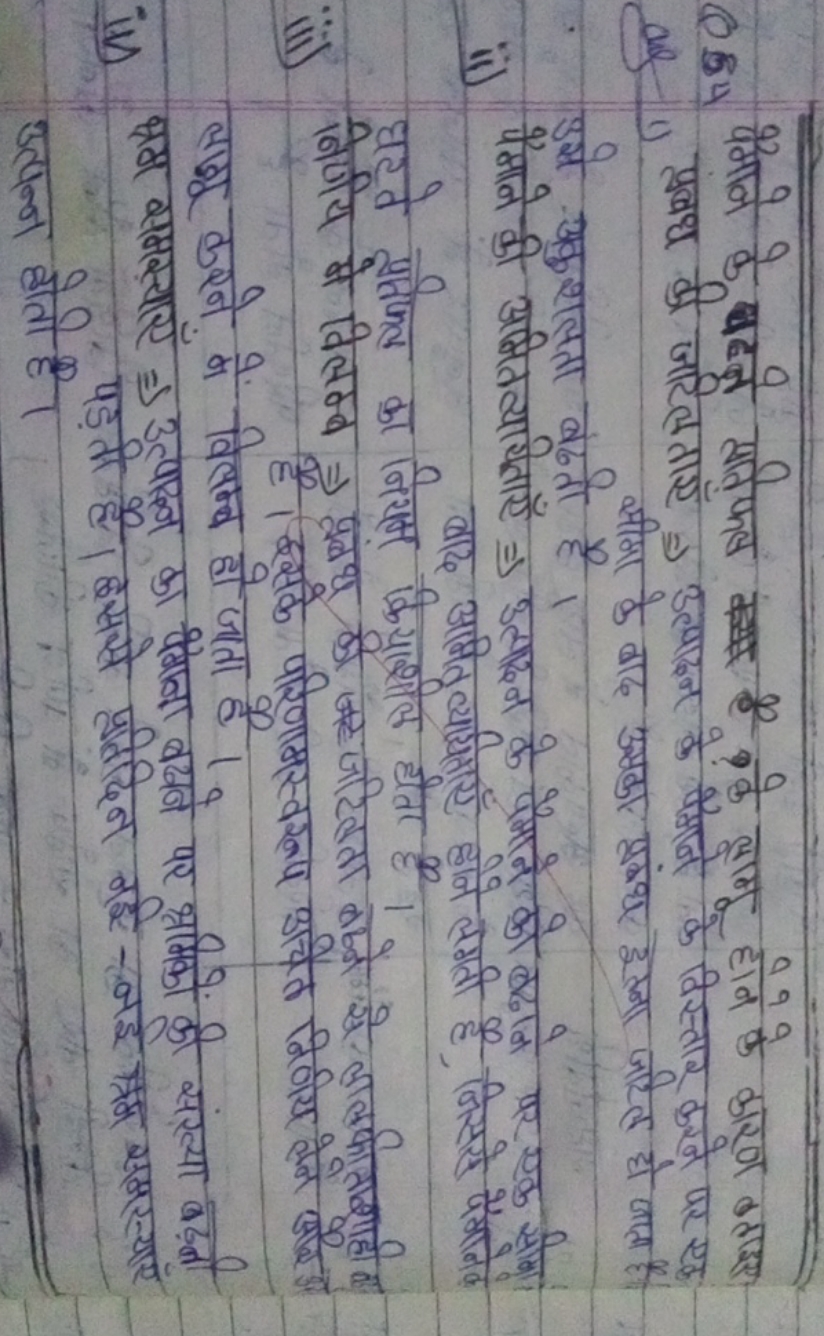 Q54 पैमाने के घटते प्रतिफल के लागू होने के कारण बताइए
Ans i) प्रबंध की जटिलताएं ⇒ उत्पादन के पैमाने के विस्तार करने पर एक
सीमा के बाद उसका प्रबंध इतना जटिल हो जाता है
उसमें अकुशलता बढती है।
ii) पैमाने की अमितव्ययिताएं ⇒ उत्पादन के पैमाने को बढाने पर एक सीमा
बाद अमितव्ययिताएं होने लगती है, जिससे पैमाने के
घटते प्रतिफल का नियम क्रियाशील होता है।
iii) निर्णय में विलम्ब ⇒ प्रबंध की जटिलता बढने से
है। इसके परिणामस्वरूप उचित निर्णय लेने और
लागू करने में विलम्ब हो जाता है।
iv) श्रम समस्याएं ⇒ उत्पादन का पैमाना बढने पर श्रमिकों की संख्या बढ़ानी
पड़ती है। इससे प्रतिदिन नई-नई श्रम समस्याएं
उत्पन्न होती है।